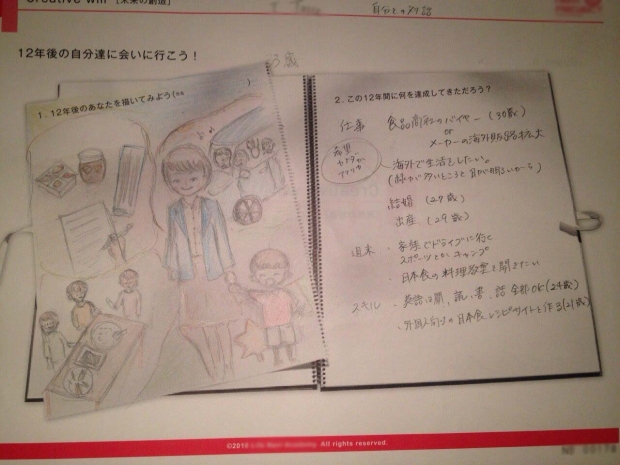 Creative will [未来の創造]
自分との対話
12年後の自分達に会いに行こう！
1. 12年後のあなたを描いてみよう(
)
2. この12年間に何を達成してきただろう？
仕事 食品商社のバイヤー (30歳)
or
メーカーの海外販路拡大
希望
カナダか
アメリカ
海外で生活をしたい。
結婚 (27歳)
出産 (29歳)
週末 ・家族でドライブに行く
スポーツとか キャンプ
・日本食の料理教室を開きたい
スキル ・英語は聞、読、書、話 全部OK (24歳)
・外国人向けの日本食レシピサイトを作る(21歳)
©2010 All rights reserved.